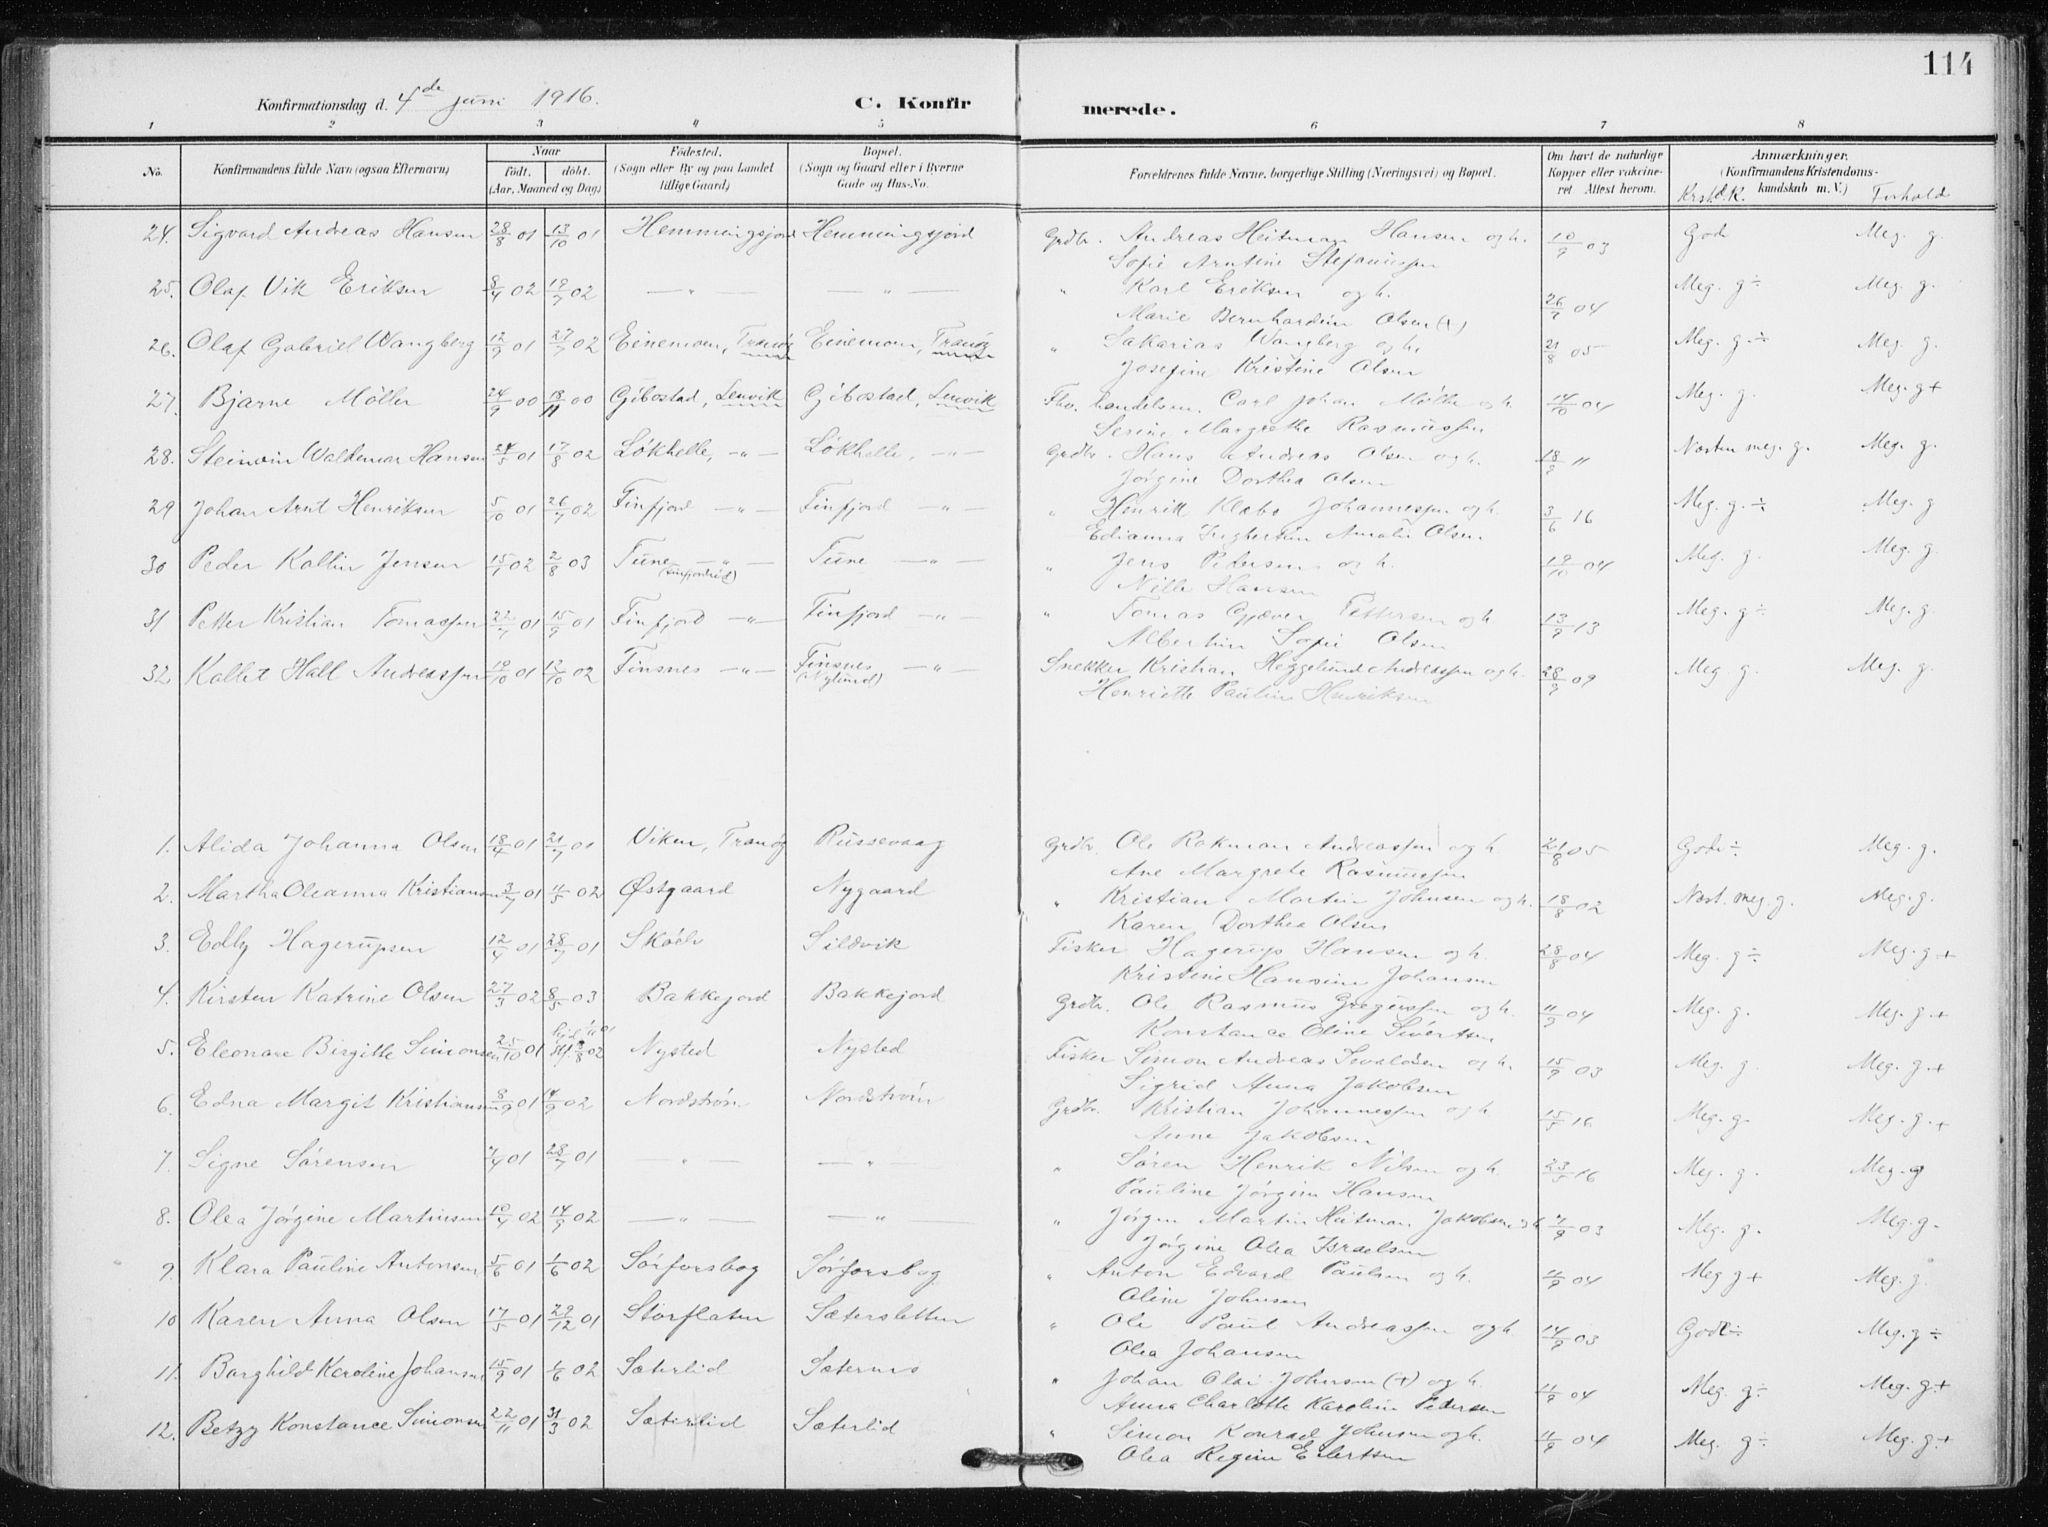 114
Konfirmationsdag d. 4de juni 1916. C. Konfirmerede.
1 2 3 4 5 6 7 8
No. Konfirmandens fulde Navn (ogsaa Efternavn) Naar født. døbt. (Aar, Maaned og Dag) Fødested. (Sogn eller By og paa Landet tillige Gaard) Bopæl. (Sogn og Gaard eller i Byerne Gade og Hus-No. Forældrenes fulde Navne, borgerlige Stilling (Næringsvei) og Bopæl. Om havt de naturlige Kopper eller vaccineret Attest herom. Anmærkninger. (Konfirmandens Kristendomskundskab m. V.) Krstd.K. Forhold
24. Sigvard Andreas Hansen 28/8 01 13/10 01 Hemmingsjord Hemmingsjord Grdbr. Andreas Heitman Hansen og h. 10/9 03 God Meg. g.
Sofie Arntine Stefanussen
25. Olaf Vik Eriksen 8/4 02 19/7 02 — " — — " — " Karl Eriksen og h. 26/7 04 Meg. g ÷ Meg. g.
Marie Bernhardin Olsen (+)
26. Olaf Gabriel Wangberg 12/9 01 27/7 02 Einemoen, Tranøy Einemoen, Tranøy " Sakarias Wangberg og h. 21/8 05 Meg. g ÷ Meg. g.
Josefine Kristine Olsen
27. Bjarne Møller 24/9 00 18/11 00 Gibostad, Lenvik Gibostad, Lenvik Fhv. handelsm. Carl Johan Møller og h. 14/10 04 Meg. g. Meg. g +
Serine Margrethe Rasmussen
28. Steinvin Waldemar Hansen 24/5 01 17/8 02 Løkhelle, — " — Løkhelle, — " — Grdbr. Hans Andreas Olsen og h. 18/9 11 Næsten meg. g. Meg. g.
Jørgine Dorthea Olsen
29 Johan Arnt Henriksen 5/10 01 26/7 02 Finfjord — " — Finfjord — " — " Henrik Klæbo Johannessen og h. 3/6 16 Meg. g. ÷ Meg. g
Edianna Ingbertine Amalie Olsen
30 Peder Kallin Jensen 15/7 02 2/8 03 Tune — " — Tune — " — " Jens Pedersen og h. 19/10 04 Meg. g. Meg. g.
Nille Hansen
31 Petter Kristian Tomassen 22/7 01 15/9 01 Finfjord — " — Finfjord — " — " Tomas Gjæver Pettersen og h. 13/9 13 Meg. g ÷ Meg. g.
Albertine Sofie Olsen
32 Kallet Hall Andreassen 19/10 01 12/10 02 Finsnes — " — Finsnes — " — (Nylund) Snekker Kristian Heggelund Andreassen og h. 28/9 09 Meg. g. Meg. g.
Henriette Pauline Henriksen
1. Alida Johanna Olsen 18/4 01 21/7 01 Viken, Tranøy Russevaag Grdbr. Ole Rakman Andreassen og h. 21/8 05 God ÷ Meg. g.
Ane Margrete Rasmussen
2. Martha Oleanna Kristiansen 3/7 01 4/5 02 Østgaard Nygaard " Kristian Martin Johnsen og h. 18/8 02 Næst. meg. g. Meg. g.
Karen Dorthea Olsen
3. Edly Hagerupsen 12/4 01 28/7 01 Sköelv Sildvik Fisker Hagerup Hansen og h. 28/8 04 Meg. g ÷ Meg. g +
Kristine Hansine Johansen
4. Kirsten Katrine Olsen 27/3 02 8/5 03 Bakkejord Bakkejord Grdbr. Ole Rasmus Gregussen og h. 11/9 04 Meg. g. Meg. g. +
Konstanse Oline Sivertsen
5. Eleonare Birgitte Simonsen 25/10 01 Nysted Nysted Fisker Simon Andreas Sevaldsen og h. 15/9 03 Meg. g. Meg. g. +
Sigrid Anna Jakobsen
6. Edna Margit Kristiansen 8/9 01 14/9 02 Nordstrøm Nordstrøm Grdbr. Kristian Johannessen og h. 15/5 16 Meg. g. Meg. g. +
Anne Jakobsen
7. Signe Sørensen 7/4 01 28/7 01 — " — — " — " Søren Henrik Nilsen og h. 23/5 16 Meg. g. Meg. g
Pauline Jørgine Hansen
8. Olea Jørgine Martinsen 10/4 02 14/9 02 — " — — " — " Jørgen Martin Heitman Jakobsen og h. 7/9 03 Meg. g. Meg. g.
Jørgine Olea Israelsen
9. Klara Pauline Antonsen 5/6 01 1/6 02 Sørforsbog Sørforsbog " Anton Edvard Paulsen og h. 11/9 04 Meg g + Meg. g.
Oline Johnsen
10 Karen Anna Olsen 17/5 01 29/12 01 Storflaten Sæterslettен " Ole Paul Andreassen og h. 14/9 03 God ÷ Meg. g ÷
Olea Johansen
11. Borghild Karoline Johansen 15/9 01 1/6 02 Sæterlid Sæternes " Johan Olai Johnsen (+) og h. 11/9 04 Meg. g ÷ Meg. g +
Anna Charlotte Karoline Pedersen
12. Betzy Konstance Simonsen 22/11 01 31/3 02 Sæterlid Sæterlid " Simon Konrad Johnsen og h. 11/9 04 Meg. g ÷ Meg. g +
Olea Regine Eilertsen